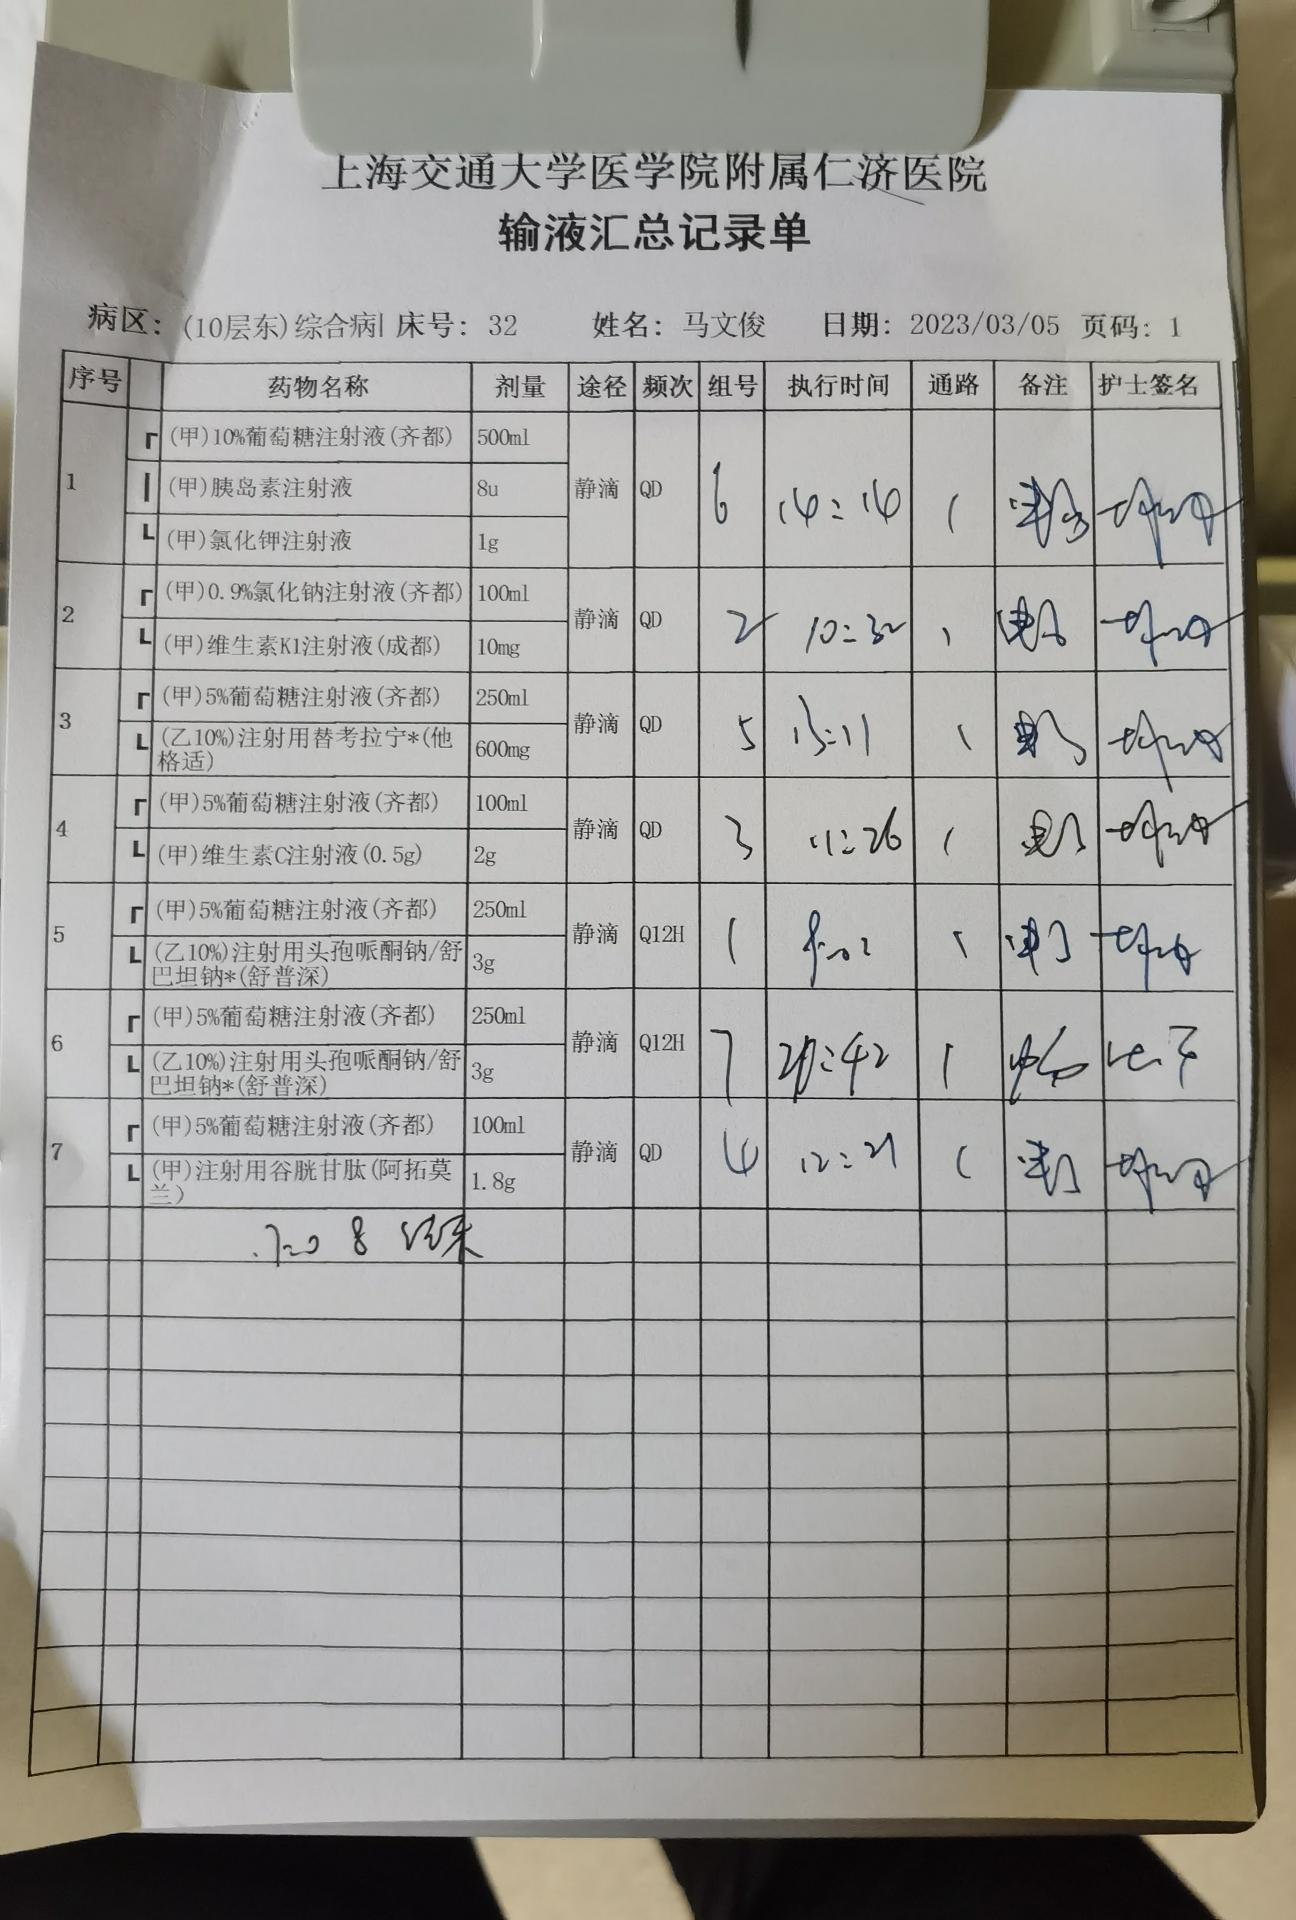 上海交通大学医学院附属仁济医院
输液汇总记录单
病区: (10层东)综合病 床号: 32 姓名: 马文俊 日期: 2023/03/05 页码: 1
序号 药物名称 剂量 途径 频次 组号 执行时间 通路 备注 护士签名
1 ┏ (甲)10%葡萄糖注射液(齐都) 500ml 静滴 QD 6 14:14 1
┃ (甲)胰岛素注射液 8u
┗ (甲)氯化钾注射液 1g
2 ┏ (甲)0.9%氯化钠注射液(齐都) 100ml 静滴 QD 2 10:32 1
┗ (甲)维生素K1注射液(成都) 10mg
3 ┏ (甲)5%葡萄糖注射液(齐都) 250ml 静滴 QD 5 13:11 1
┗ (乙10%)注射用替考拉宁*(他
格适) 600mg
4 ┏ (甲)5%葡萄糖注射液(齐都) 100ml 静滴 QD 3 11:26 1
┗ (甲)维生素C注射液(0.5g) 2g
5 ┏ (甲)5%葡萄糖注射液(齐都) 250ml 静滴 Q12H 1 1
┗ (乙10%)注射用头孢哌酮钠/舒
巴坦钠*(舒普深) 3g
6 ┏ (甲)5%葡萄糖注射液(齐都) 250ml 静滴 Q12H 7 20:42 1
┗ (乙10%)注射用头孢哌酮钠/舒
巴坦钠*(舒普深) 3g
7 ┏ (甲)5%葡萄糖注射液(齐都) 100ml 静滴 QD 4 12:21 1
┗ (甲)注射用谷胱甘肽(阿拓莫
兰) 1.8g
17:08 结束